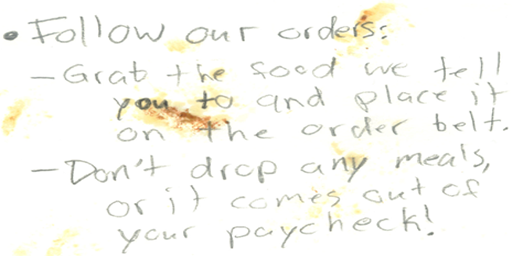 • Follow our orders:
– Grab the food we tell
you to and place it
on the order belt.
– Don't drop any meals,
or it comes out of
your paycheck!